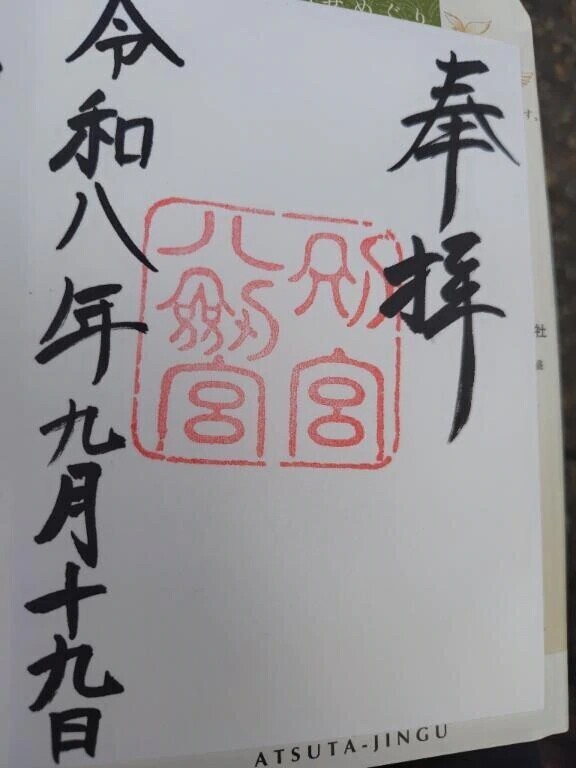 奉拝
別宮
八剱宮
令和八年九月十九日
めぐり
す。
社
ATSUTA-JINGU